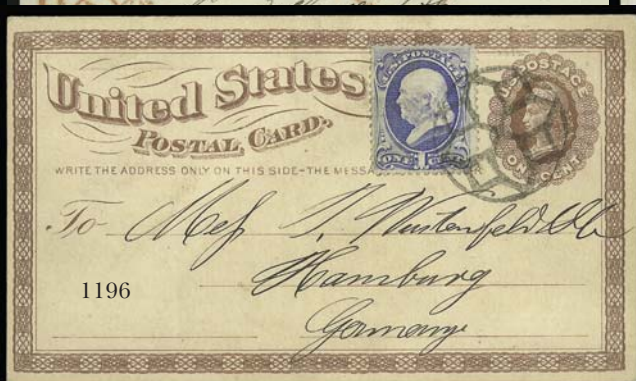 United States
POSTAL CARD.
WRITE THE ADDRESS ONLY ON THIS SIDE-THE MESSA
U.S. POSTAGE
ONE 1 CENT
U.S. POSTAGE
ONE CENT
To Mess
Hamburg
Germany
1196